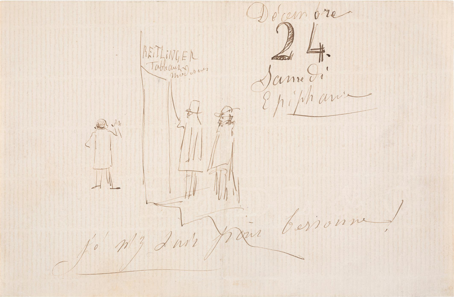 Décembre
24.
Samedi
Epiphane
REITLINGER
Tableaux
modernes
je n'y suis pour personne!